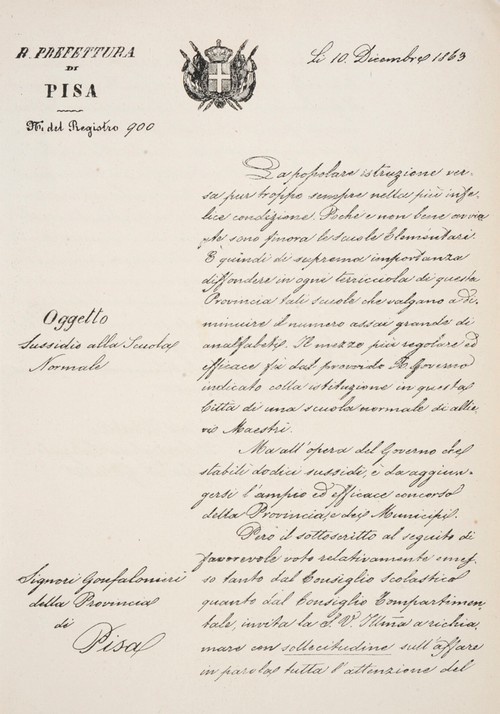 R. PREFETTURA
DI
PISA
N.i del Registro 900
Li 10. Dicembre 1863
La popolare istruzione ver-
sa pur troppo sempre nella più infe-
lice condizione. Poche e non bene avvia-
te sono finora le scuole Elementari.
È quindi di suprema importanza
diffondere in ogni terricciola di questa
Provincia tali scuole che valgano a di-
minuire il numero assai grande di
analfabeti. Il mezzo più regolare ed
efficace fu dal provvido R. Governo
indicato colla istituzione in questa
Città di una scuola normale di allie-
vi Maestri.
Ma all'opera del Governo che
stabilì dodici sussidi, è da aggiun-
gersi l'ampio ed efficace concorso
della Provincia, e dei Municipi.
Però il sottoscritto al seguito di
favorevole voto relativamente emes-
so tanto dal Consiglio scolastico
quanto dal Consiglio Compartimen-
tale, invita la S. V. Illma a richia-
mare con sollecitudine sull'affare
in parola tutta l'attenzione del
Oggetto
Sussidio alla Scuola
Normale
Signori Gonfalonieri
della Provincia
di
Pisa